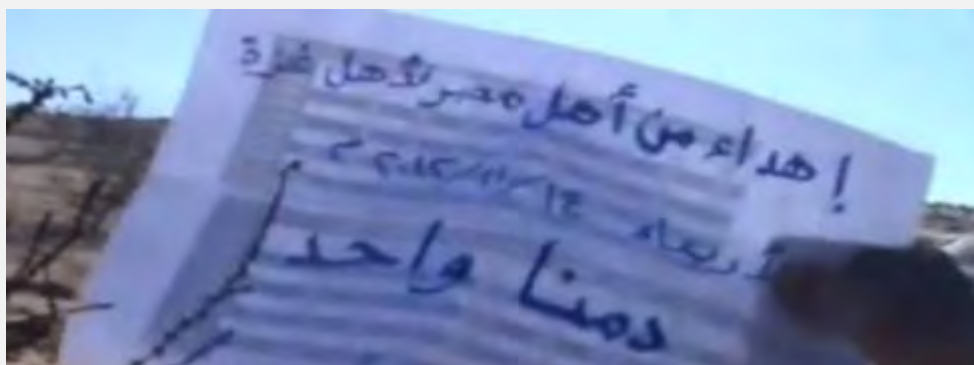 إهداء من أهل مصر لأهل غزة
الأربعاء ١٤/١١/٢٠١٢ م
دمنا واحد